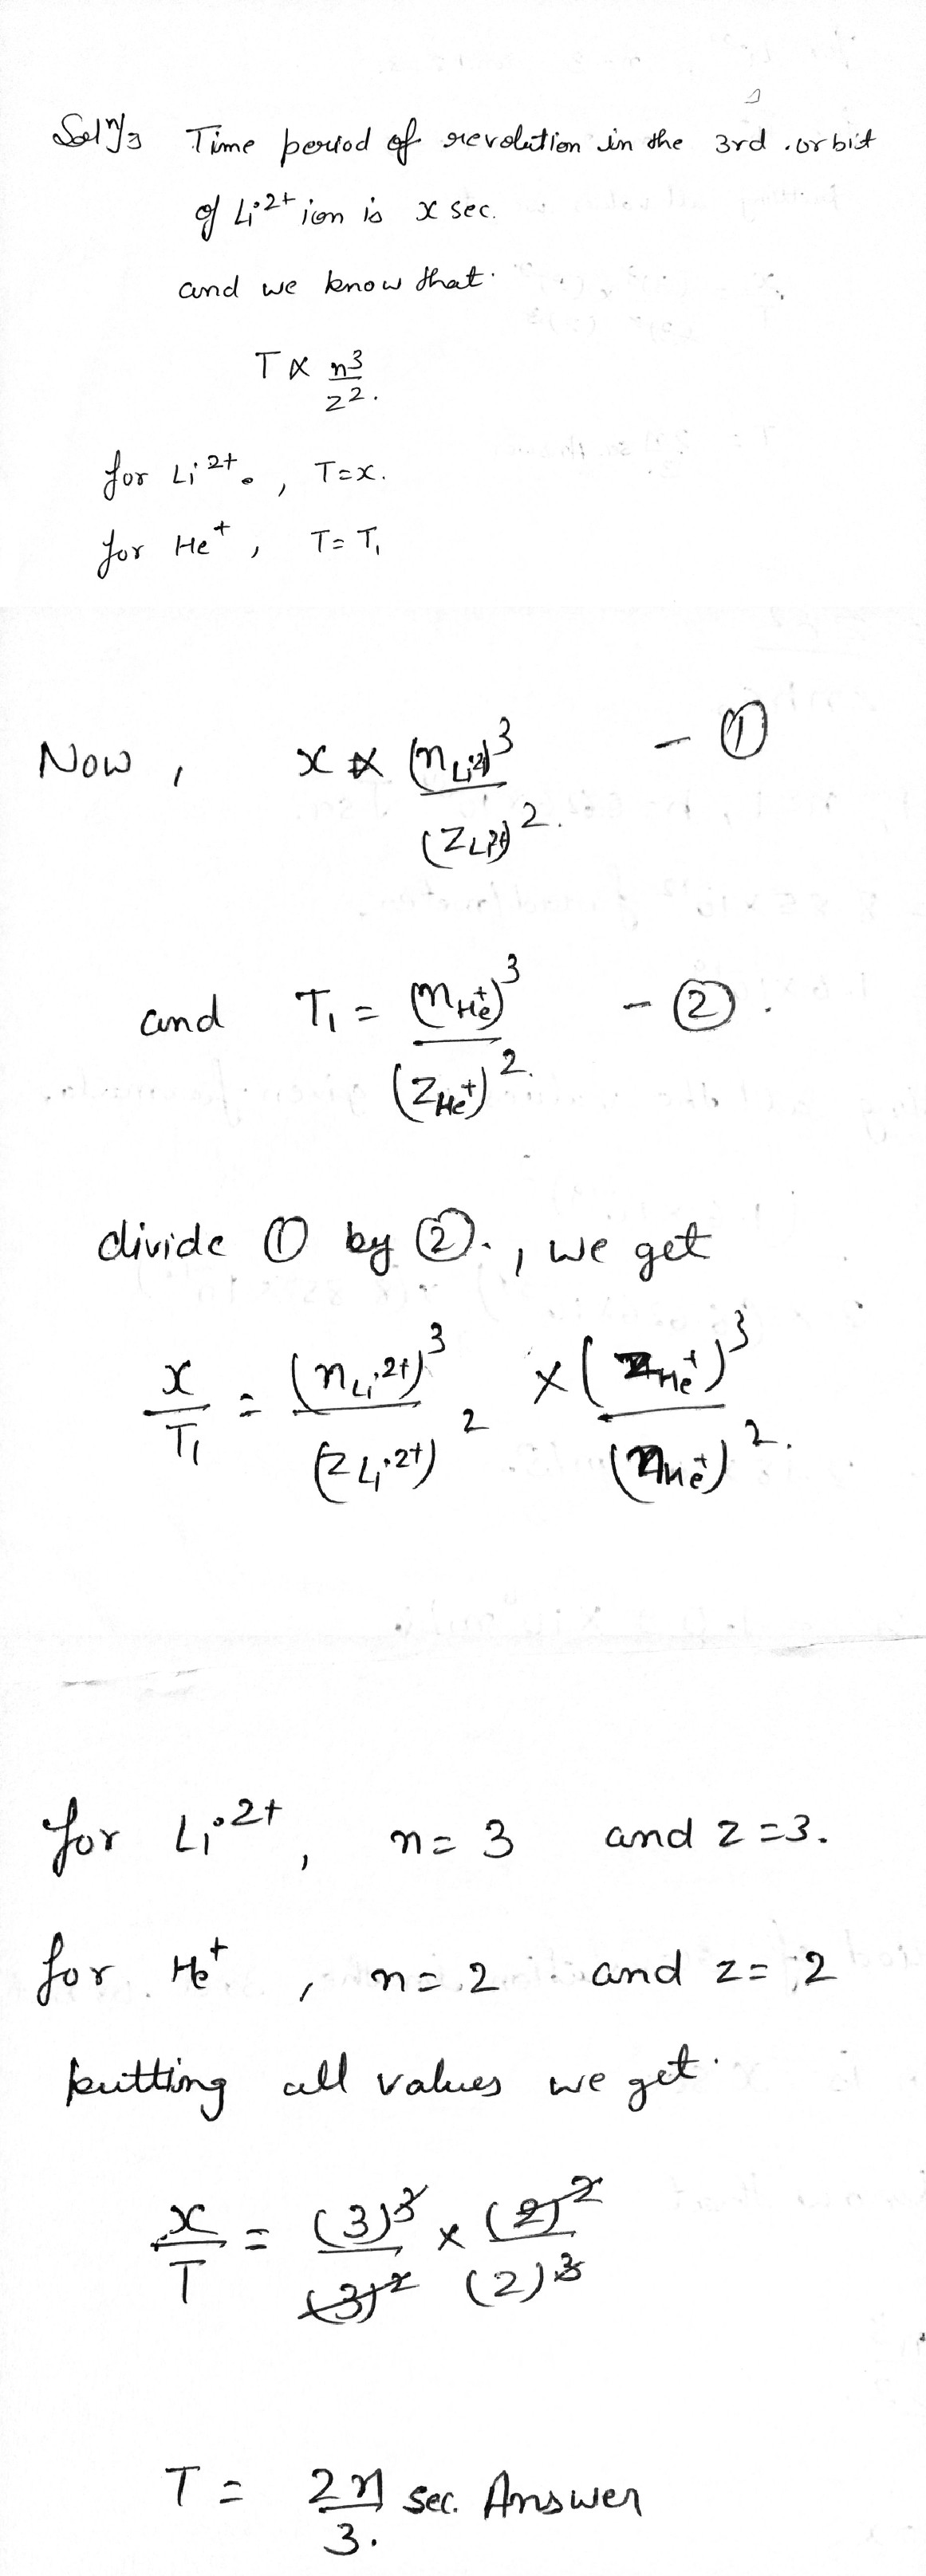 Solⁿ/3 Time period of revolution in the 3rd orbit
of Li²⁺ ion is x sec.
and we know that.
T ∝ n³/z².
for Li²⁺, T=x.
for He⁺, T=T₁
Now, x ∝ (n Li²⁺)³/(Z Li²⁺)². – ①
and T₁ = (n He⁺)³/(Z He⁺)². – ②.
divide ① by ②., we get
x/T₁ = (n Li²⁺)³/(Z Li²⁺)² × (Z He⁺)³/(n He⁺)².
for Li²⁺, n=3 and z=3.
for He⁺, n=2 and z=2
putting all values we get.
x/T = (3)³/(3)² × (2)²/(2)³
T = 2x/3. sec. Answer